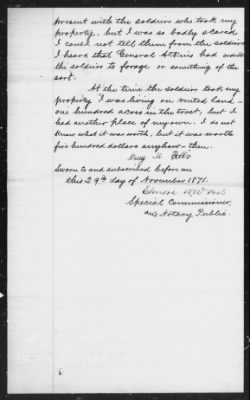 present with the soldiers who took my
property, but I was so badly scared
I could not tell them from the soldiers
I heard that General Atkins had sent
the soldiers to forage or something of the
sort.
At the time the soldiers took my
property I was living on rented land—
one hundred acres in the tract, but I
had another place of my own. I do not
know what it was worth, but it was worth
five hundred dollars anyhow—then.
Sworn to and subscribed before me
this 29th day of November 1871.
Special Commissioner,
and Notary Public.